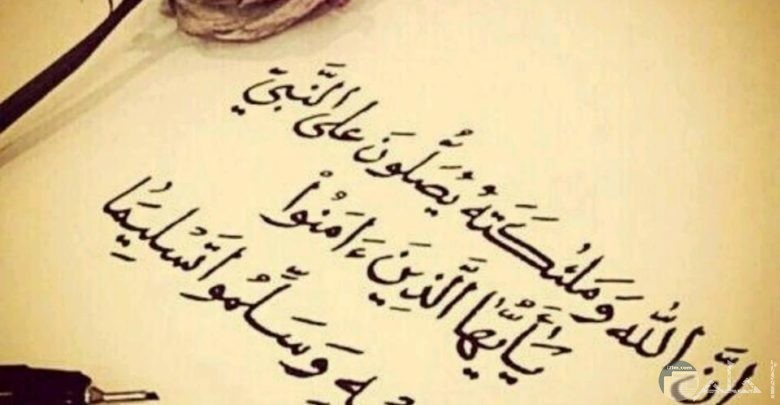 إِنَّ اللَّهَ وَمَلَٰئِكَتَهُ يُصَلُّونَ عَلَى النَّبِيِّ
يَٰأَيُّهَا الَّذِينَ ءَامَنُوا۟
وَسَلِّمُوا تَسْلِيمًا